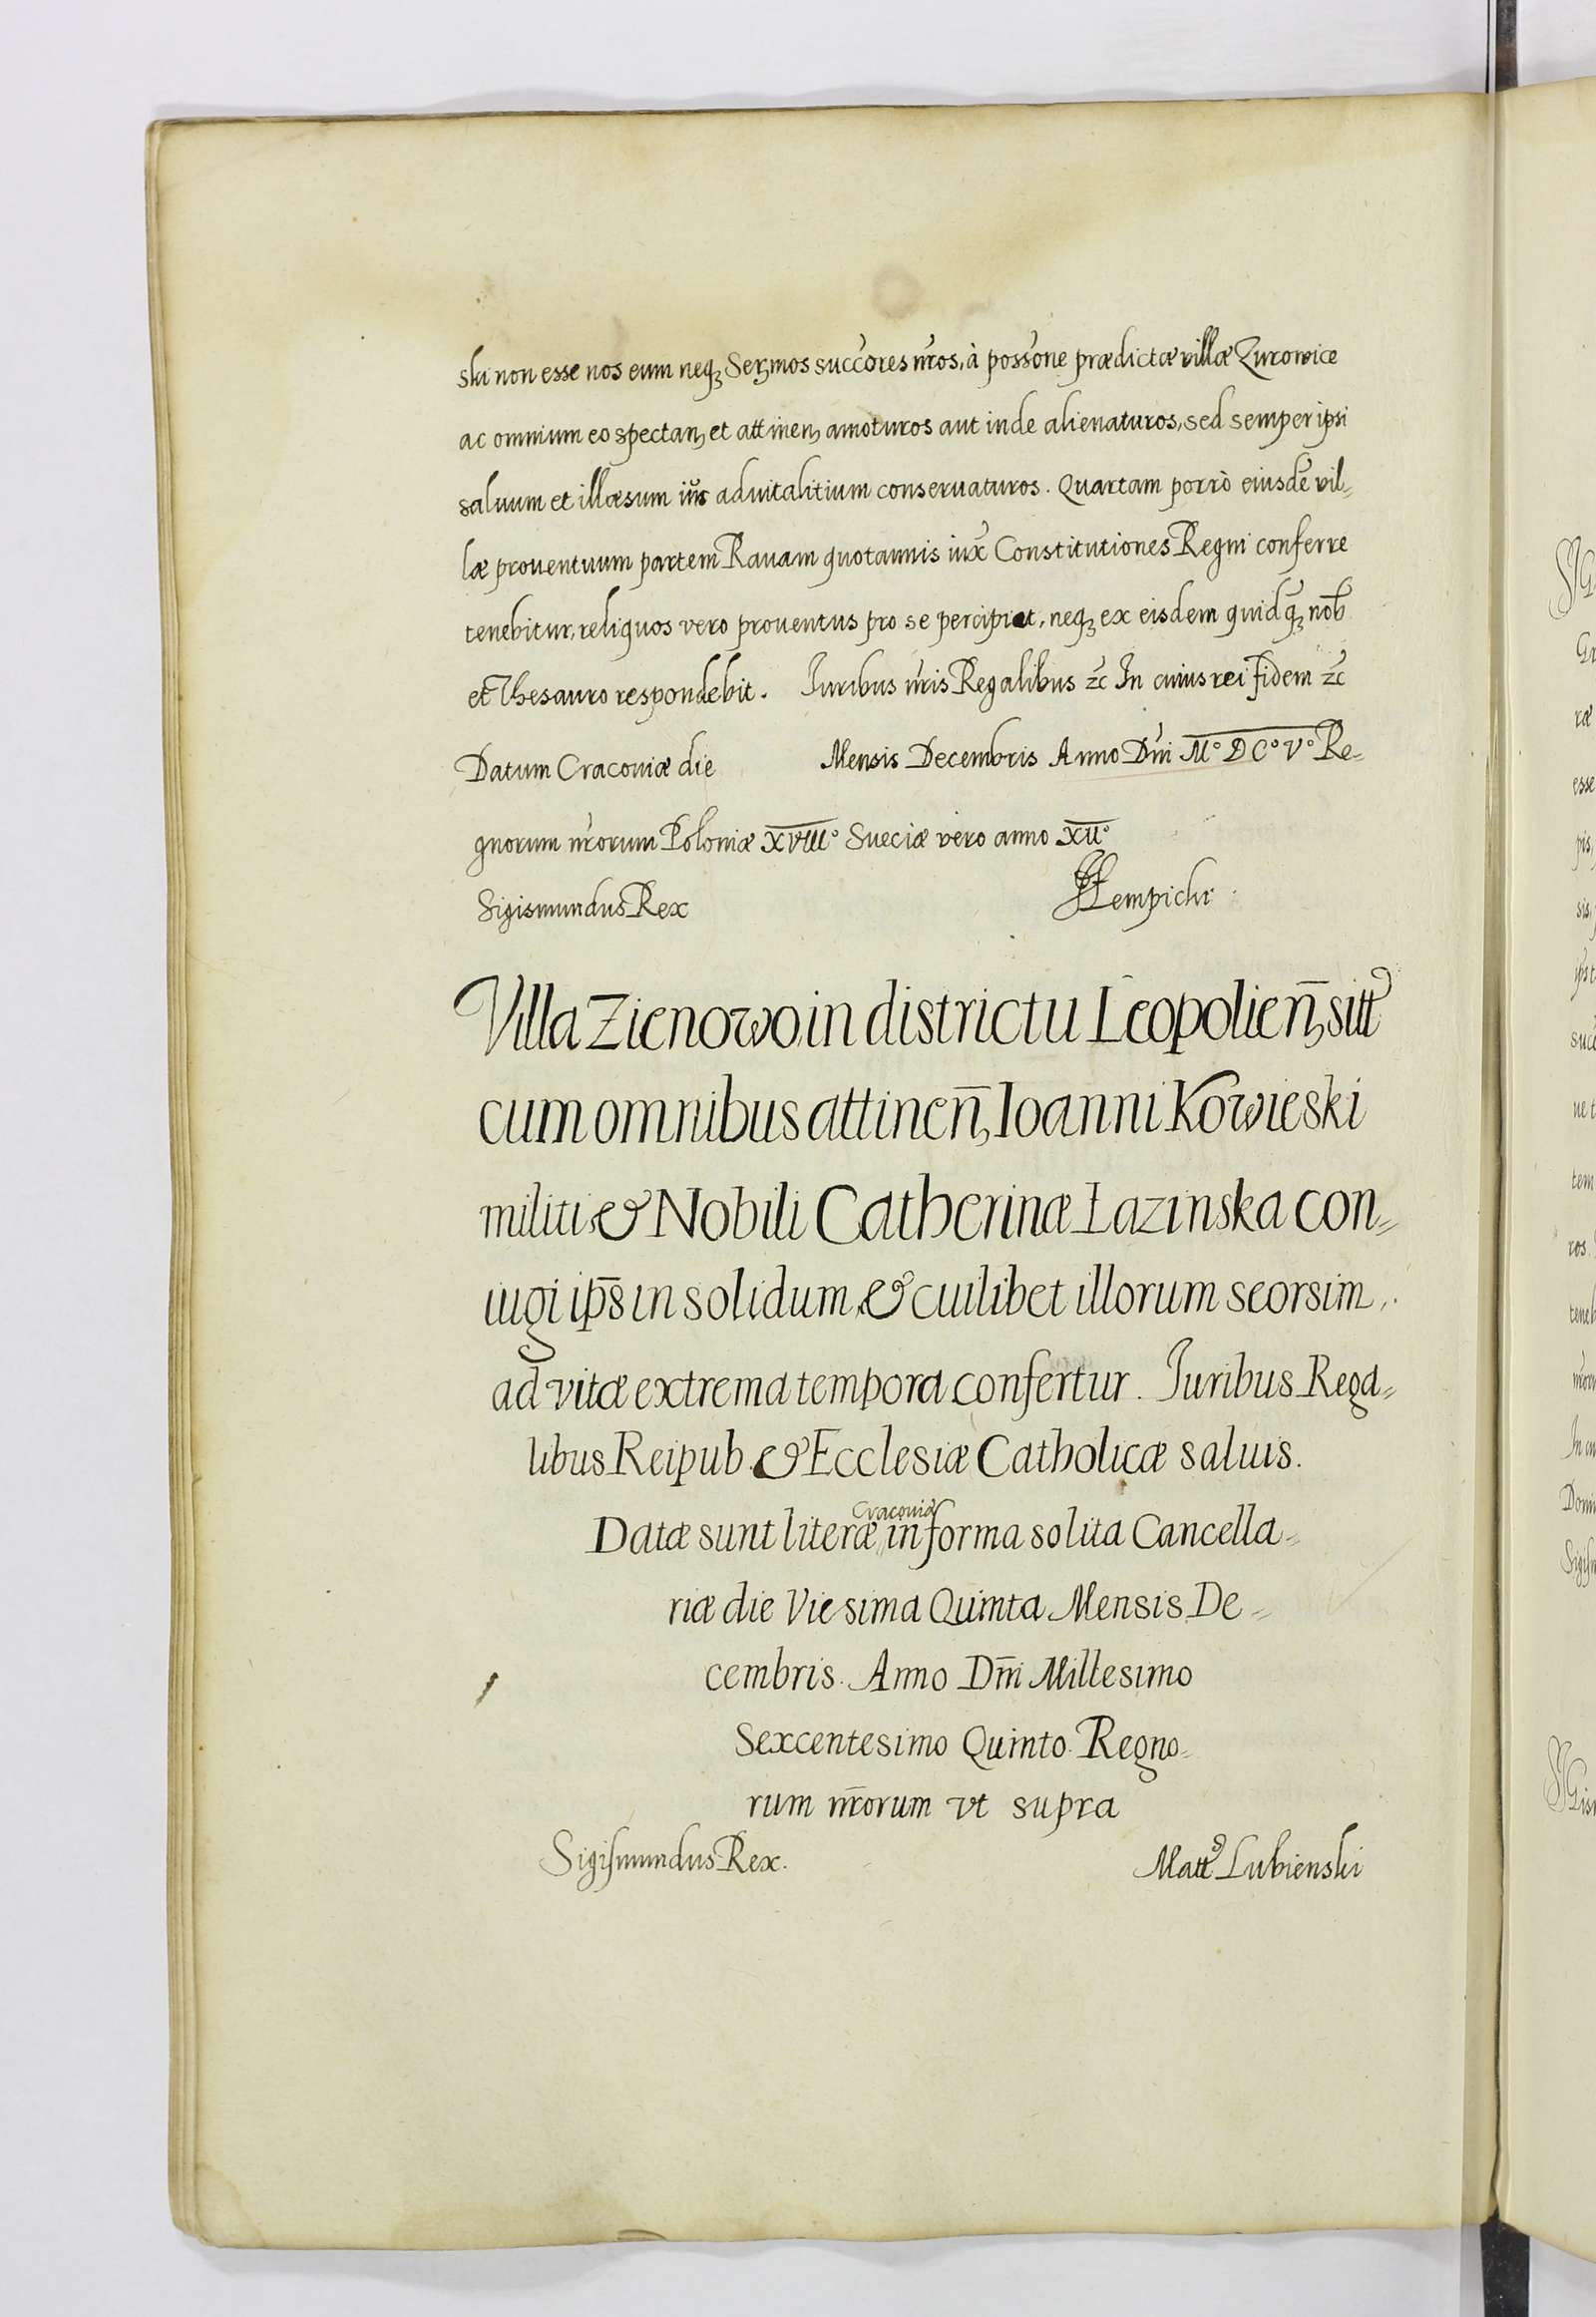 ski non esse nos eum neqꝫ Serꝫmos succ̃ores nr̃os, à poss̃one prædictæ villæ Zurowice
ac omnium eo spectanꝫ et attinenꝫ amoturos aut inde alienaturos, sed semper ipsi
saluum et illæsum ius aduitalitium conseruaturos. Quartam porrò eiusdẽ vil=
læ prouentuum partem Rauam quotannis iux̃ Constitutiones Regni conferre
tenebitur, reliquos vero prouentus pro se percipiet, neqꝫ ex eisdem quidq̃ꝫ nob̃
et Thesauro respondebit. Iuribus nr̃is Regalibus zc̃ In cuius rei fidem zc̃
Datum Cracouiæ die Mensis Decembris Anno Dñi M° DC° V° Re=
gnorum nr̃orum Poloniæ XVIII° Sueciæ vero anno XII°
Sigismundus Rex
Villa Zienowo in districtu Leopolieñꝫ sitt
cum omnibus attineñꝫ Ioanni Kowieski
militi & Nobili Catherinæ Lazinska con=
iugi ips̃ in solidum & cuilibet illorum seorsim
ad vitæ extrema tempora confertur. Iuribus Rega=
libus Reipub. & Ecclesiæ Catholicæ saluis.
Cracouiæ
Datæ sunt literæ in forma solita Cancella=
riæ die Viesima Quinta Mensis De=
cembris. Anno Dñi Millesimo
Sexcentesimo Quinto. Regno=
rum nr̃orum vt supra
Sigismundus Rex.
Matt⁹ Lubienski